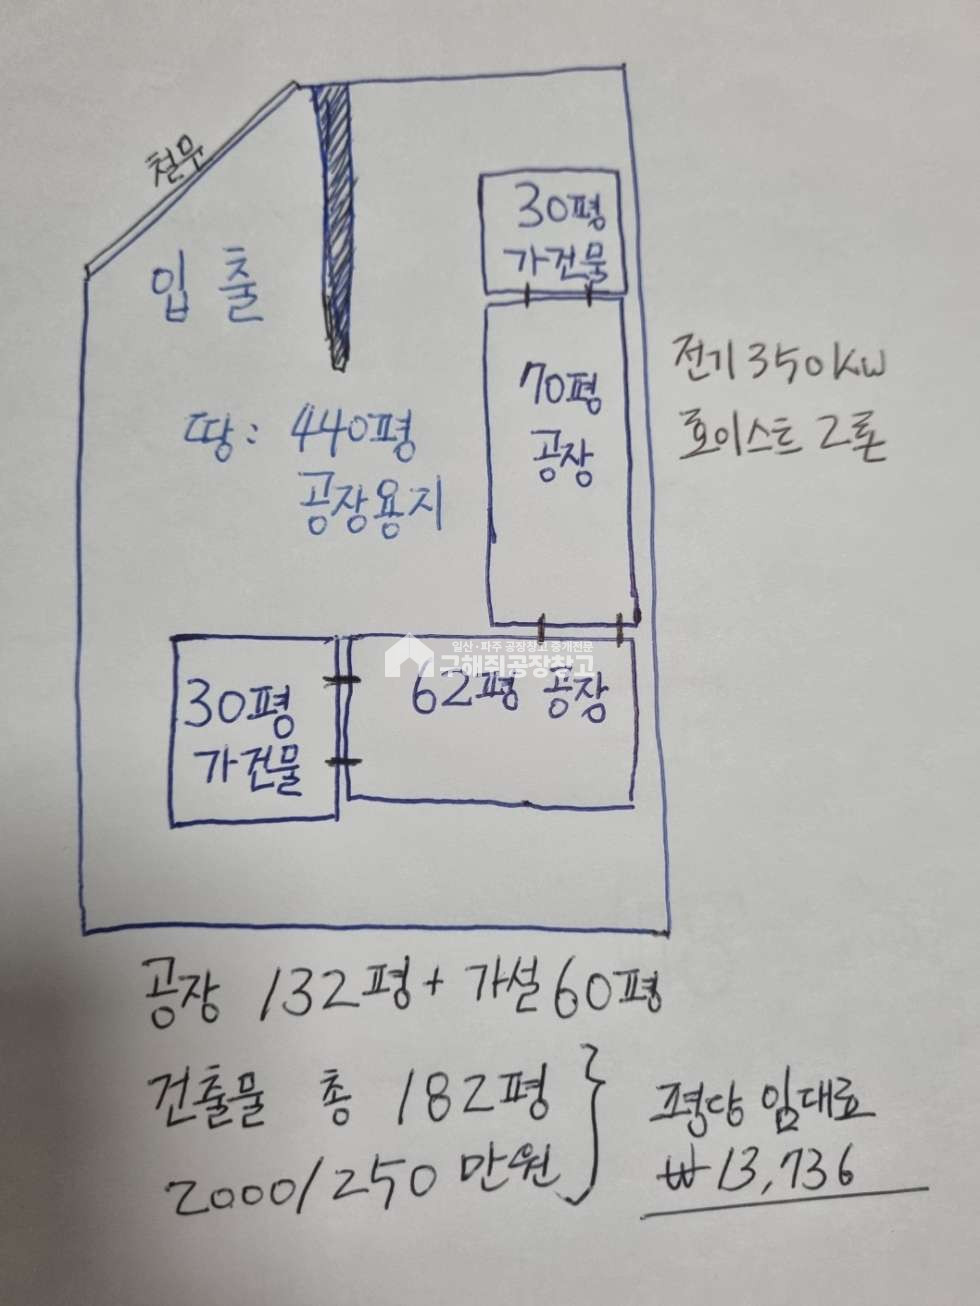 철문
입 출
30평
가건물
땅: 440평
공장용지
70평
공장
전기 350kw
호이스트 2톤
일산·파주 공장창고 중개전문
구해줘공장창고
30평
가건물
62평 공장
공장 132평 + 가설 60평
건축물 총 182평
2000/250 만원
평당 임대료
₩13,736